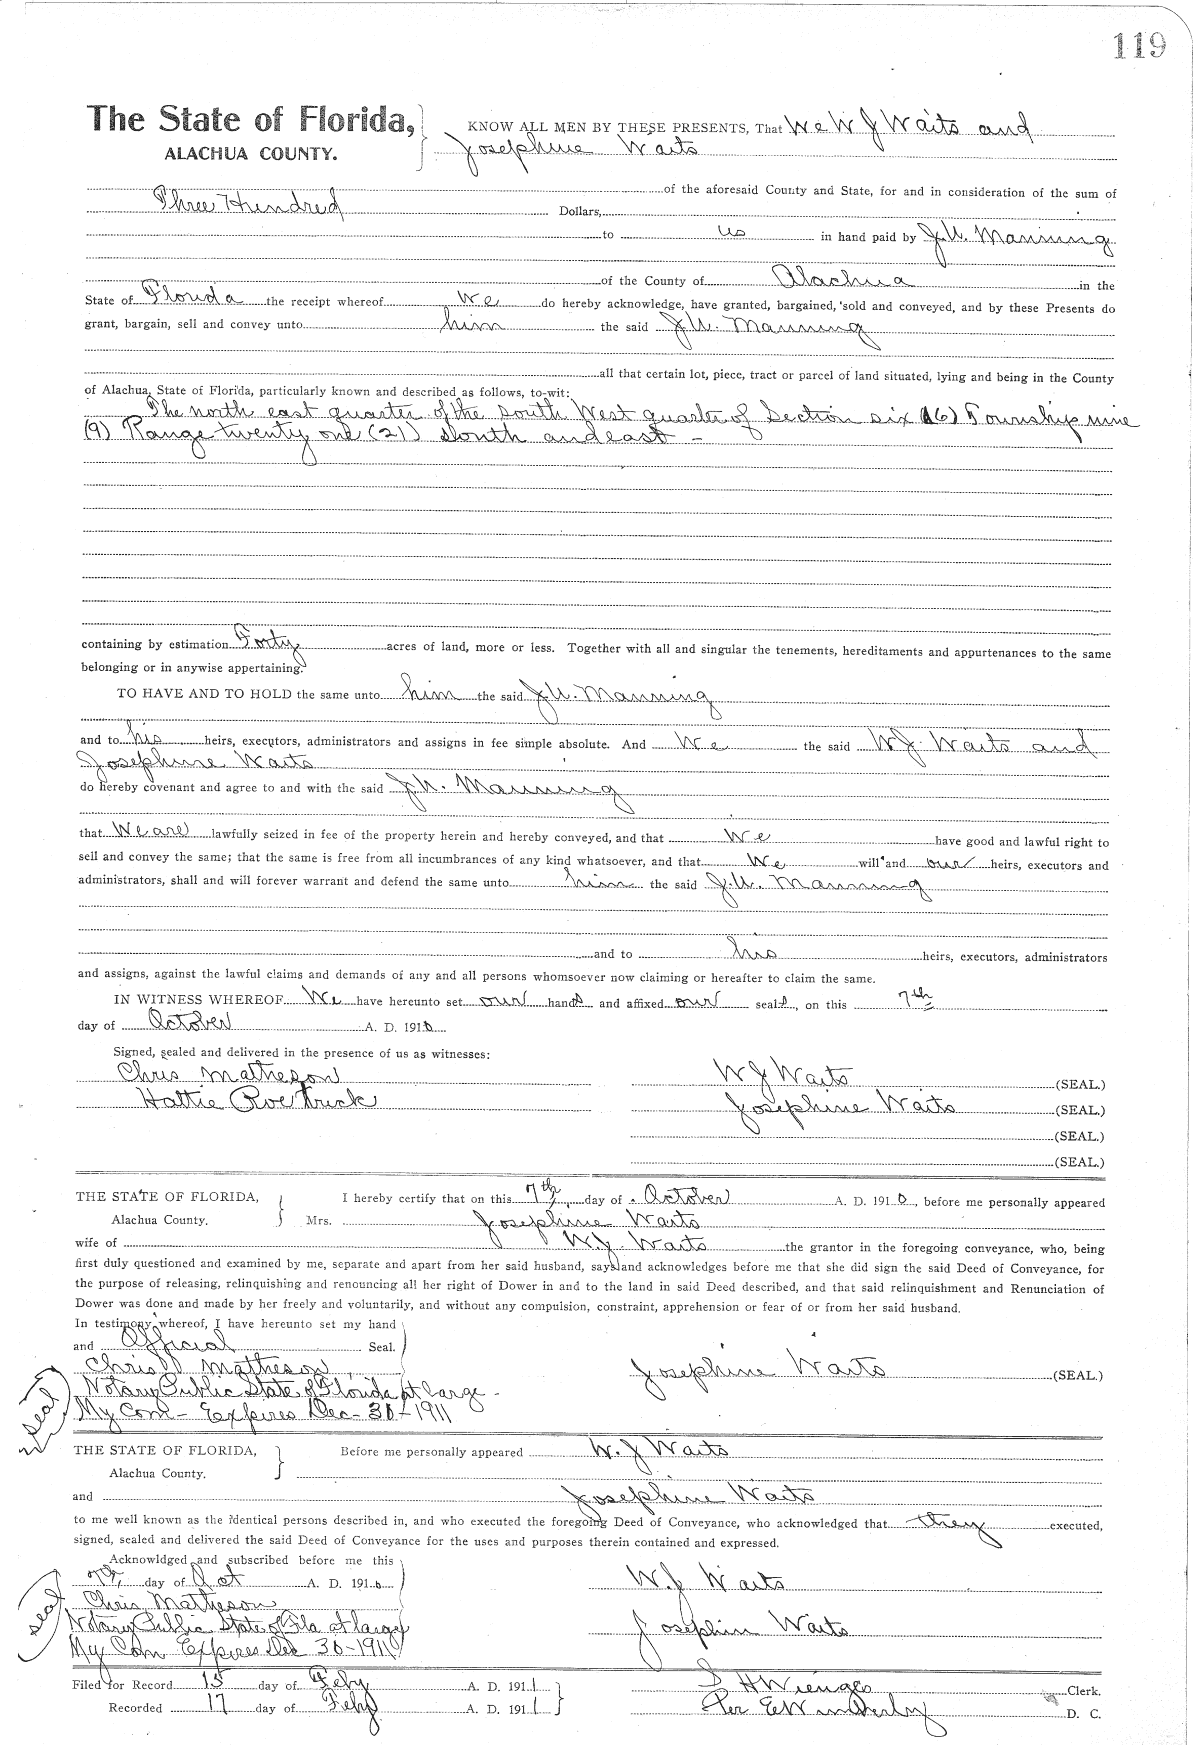 119
The State of Florida,
ALACHUA COUNTY.
KNOW ALL MEN BY THESE PRESENTS, That We W J Waits and
Josephine Waits
of the aforesaid County and State, for and in consideration of the sum of
Three Hundred Dollars,
to us in hand paid by J.W. Manning
of the County of Alachua in the
State of Florida the receipt whereof We do hereby acknowledge, have granted, bargained, sold and conveyed, and by these Presents do
grant, bargain, sell and convey unto him the said J.W. Manning
all that certain lot, piece, tract or parcel of land situated, lying and being in the County
of Alachua, State of Florida, particularly known and described as follows, to-wit:
The north east quarter of the South West quarter of Section six (6) Township nine
(9) Range twenty one (21) South and east -
containing by estimation Forty acres of land, more or less. Together with all and singular the tenements, hereditaments and appurtenances to the same
belonging or in anywise appertaining.
TO HAVE AND TO HOLD the same unto him the said J.W. Manning
and to his heirs, executors, administrators and assigns in fee simple absolute. And We the said W.J. Waits and
Josephine Waits
do hereby covenant and agree to and with the said J.W. Manning
that We are lawfully seized in fee of the property herein and hereby conveyed, and that We have good and lawful right to
sell and convey the same; that the same is free from all incumbrances of any kind whatsoever, and that We will and our heirs, executors and
administrators, shall and will forever warrant and defend the same unto him the said J.W. Manning
and to his heirs, executors, administrators
and assigns, against the lawful claims and demands of any and all persons whomsoever now claiming or hereafter to claim the same.
IN WITNESS WHEREOF We have hereunto set our hands and affixed our seals, on this 7th
day of October A. D. 1910
Signed, sealed and delivered in the presence of us as witnesses:
Chris Matheson W J Waits (SEAL.)
Hattie Roetruck Josephine Waits (SEAL.)
(SEAL.)
(SEAL.)
THE STATE OF FLORIDA, I hereby certify that on this 7th day of October A. D. 1910, before me personally appeared
Alachua County. Mrs. Josephine Waits
wife of W.J. Waits the grantor in the foregoing conveyance, who, being
first duly questioned and examined by me, separate and apart from her said husband, says and acknowledges before me that she did sign the said Deed of Conveyance, for
the purpose of releasing, relinquishing and renouncing all her right of Dower in and to the land in said Deed described, and that said relinquishment and Renunciation of
Dower was done and made by her freely and voluntarily, and without any compulsion, constraint, apprehension or fear of or from her said husband.
In testimony whereof, I have hereunto set my hand
and Official Seal.
Chris Matheson Josephine Waits (SEAL.)
Notary Public State of Florida at large -
seal My Com - Expires Dec - 30 - 1911
THE STATE OF FLORIDA, Before me personally appeared W. J Waits
Alachua County.
and Josephine Waits
to me well known as the identical persons described in, and who executed the foregoing Deed of Conveyance, who acknowledged that they executed,
signed, sealed and delivered the said Deed of Conveyance for the uses and purposes therein contained and expressed.
Acknowldged and subscribed before me this
7th day of Oct A. D. 1910 W.J Waits
seal Chris Matheson
Notary Public State of Fla at large Josephin Waits
My Com Expires Dec 30 - 1911
Filed for Record 15 day of Feby A. D. 1911 S H Wienges Clerk.
Recorded 17 day of Feby A. D. 1911 Per E Wimberly D. C.